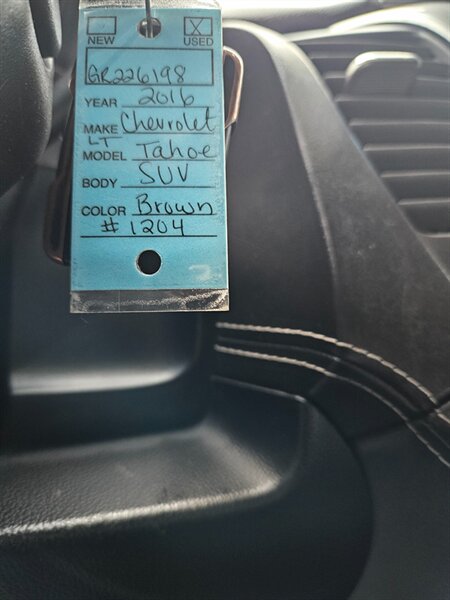 NEW X USED
GR226198
YEAR 2016
MAKE Chevrolet
LT
MODEL Tahoe
BODY SUV
COLOR Brown
# 1204